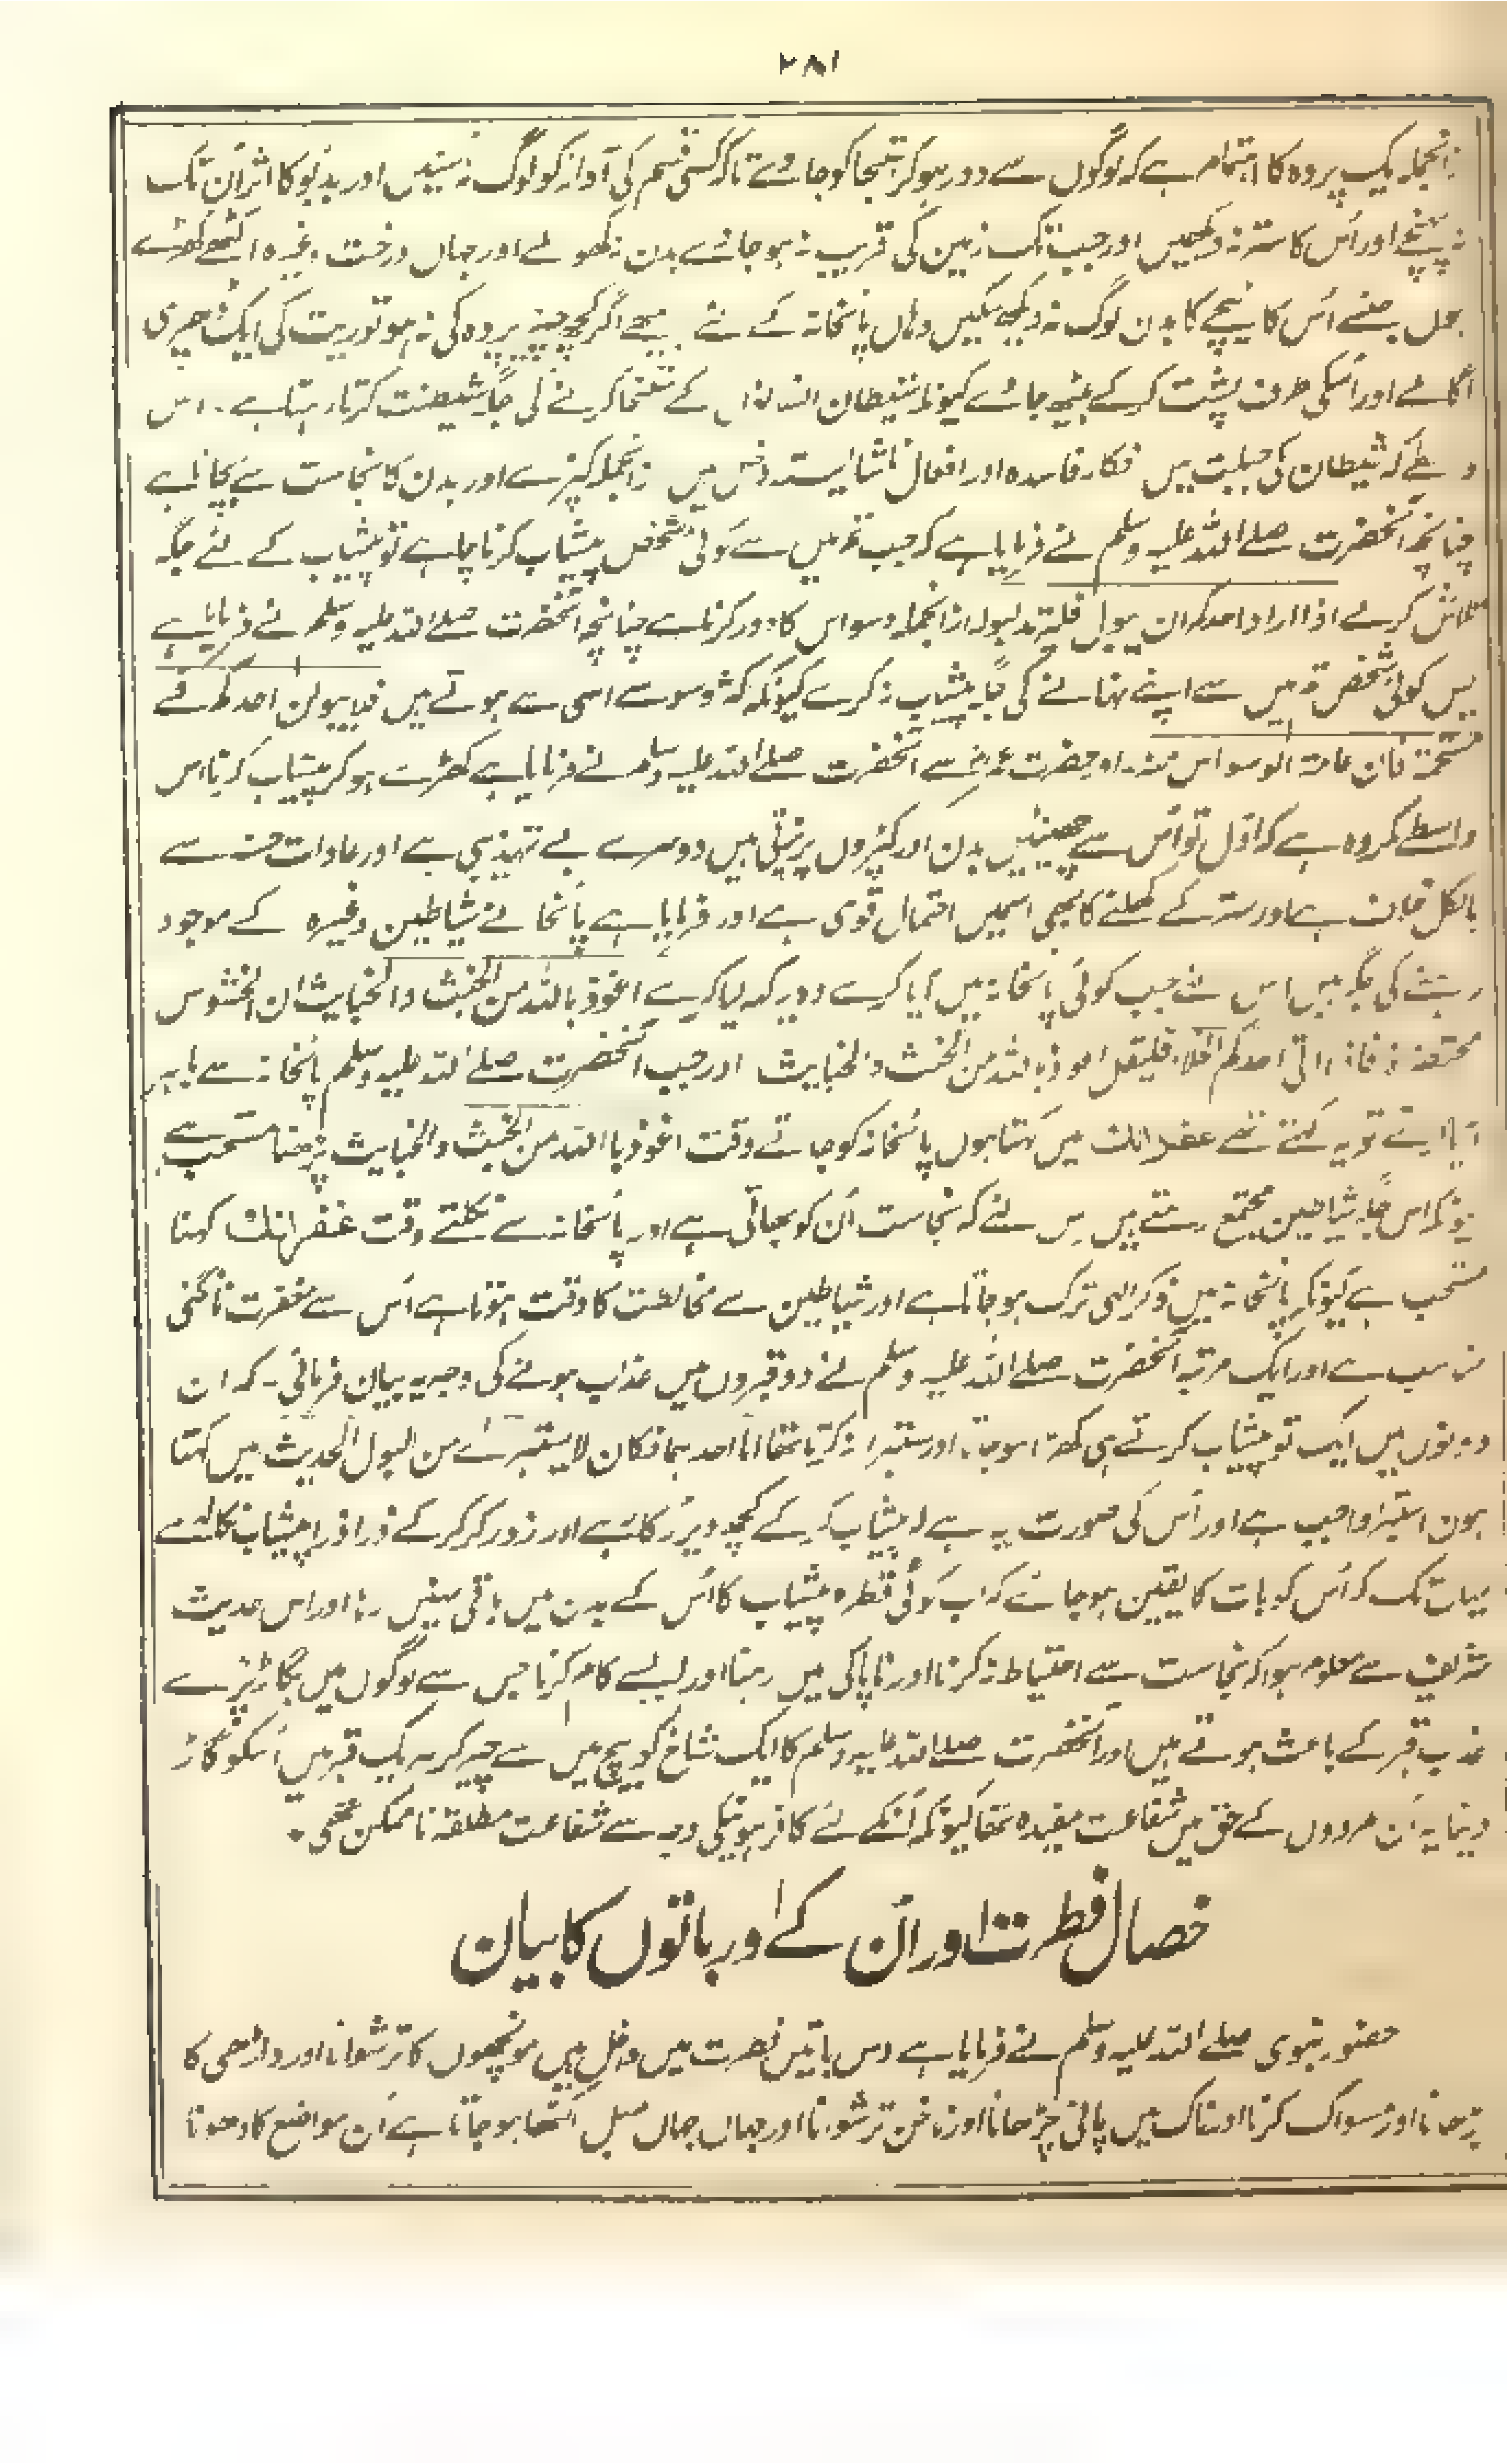 ۲۸۱
ازانجملہ ایک پردہ کا اہتمام ہے کہ لوگوں سے دور ہوکر استنجا کو جاوے تاکہ کسی قسم کی آواز کو لوگ نہ سنیں اور بدبو کا اثر ان تک
نہ پہنچے اور اُس کا ستر نہ دیکھیں اور جب تک زمین کی قریب نہ ہو جائے بدن نہ کھولے اور جہاں درخت وغیرہ اکٹھے کھڑے
ہوں جسنے اُس کا نیچے کا بدن لوگ نہ دیکھ سکیں وہاں پائخانہ کے لئے بیٹھے اگر کچھ چیز پردہ کی نہ ہو تو ریت کی ایک ڈھیری
لگالے اور اُسکی طرف پشت کر کے بیٹھ جائے کیونکہ شیطان انسانوں کے استنجا کرنے کی جگہ شیطنت کرتا رہتا ہے۔ اس
واسطے کہ شیطان کی جبلت میں افکار فاسدہ اور افعال ناشائستہ داخل ہیں ازانجملہ کپڑے اور بدن کا نجاست سے بچانا ہے
چنانچہ آنحضرت صلے اللہ علیہ وسلم نے فرمایا ہے کہ جب تم میں سے کوئی شخص پیشاب کرنا چاہے تو پیشاب کے لئے جگہ
تلاش کرلے اذا اراد احدکم ان یبول فلیرتد لبولہ ازانجملہ وسواس کا دور کرنا ہے چنانچہ آنحضرت صلے اللہ علیہ وسلم نے فرمایا ہے
پس کوئی شخص تم میں سے اپنے نہانے کی جگہ پیشاب نہ کرے کیونکہ اکثر وسوسے اسی سے ہوتے ہیں لایبولن احدکم فے
مستحمہ فان عامۃ الوسواس منہ۔ اور حضرت عمرؓ سے آنحضرت صلے اللہ علیہ وسلم نے فرمایا ہے کھڑے ہوکر پیشاب کرنا اس
واسطے مکروہ ہے کہ اوّل تو اُس سے چھینٹیں بدن اور کپڑوں پر پڑتی ہیں دوسرے بے تہذیبی ہے اور عادات حسنہ سے
بالکل خلاف ہے اور ستر کے کھلنے کا بھی اسمیں احتمال قوی ہے اور فرمایا ہے پائخانے شیاطین وغیرہ کے موجود
رہنے کی جگہ ہیں اس لئے جب کوئی پائخانہ میں آیا کرے وہ یہ کہہ لیا کرے اعوذ باللہ من الخبث والخبایث ان الحشوش
محتضرۃ فاذا اتی احدکم الخلاء فلیقل اعوذ باللہ من الخبث والخبایث اور جب آنحضرت صلے اللہ علیہ وسلم پائخانہ سے باہر
آیا کرتے تو یہ کہتے تھے غفرانک میں کہتا ہوں پائخانہ کو جاتے وقت اعوذ با اللہ من الخبث والخبایث پڑھنا مستحب ہے
کیونکہ اس جگہ شیاطین مجتمع رہتے ہیں اس لئے کہ نجاست اُن کو بھاتی ہے اور پائخانہ سے نکلتے وقت غفرانک کہنا
مستحب ہے کیونکہ پائخانہ میں ذکر الہی ترک ہو جاتا ہے اور شیاطین سے مخالطت کا وقت ہوتا ہے اُس سے مغفرت مانگنی
مناسب ہے اور ایک مرتبہ آنحضرت صلے اللہ علیہ وسلم نے دو قبروں میں عذاب ہونے کی وجہ یہ بیان فرمائی۔ کہ ان
دونوں میں ایک تو پیشاب کرتے ہی کھڑا ہوجاتا اور استبرا نہ کرتا تھا اما احدہما فکان لا یستبرائے من البول الحدیث میں کہتا
ہوں استبرا واجب ہے اور اُس کی صورت یہ ہے کہ پیشاب کر کے کچھ دیر رُکا رہے اور زور کر کر کے ذرا ذرا پیشاب نکالے
یہاں تک کہ اُس کو بات کا یقین ہوجائے کہ اب کوئی قطرہ پیشاب کا اُس کے بدن میں باقی نہیں رہا اور اس حدیث
شریف سے معلوم ہوا کہ نجاست سے احتیاط نہ کرنا اور ناپاکی میں رہنا اور ایسے کام کرنا جس سے لوگوں میں بگاڑ پڑے
عذاب قبر کے باعث ہوتے ہیں اور آنحضرت صلے اللہ علیہ وسلم کا ایک شاخ کو بیچ میں سے چیر کر ہر یک قبر میں اُسکو گاڑ
دینا یہ اُن مردوں کے حق میں شفاعت مقیدہ تھا کیونکہ اُنکے لئے کافر ہونیکی وجہ سے شفاعت مطلقہ ناممکن تھی۔
خصال فطرت اور اُن کے اور باتوں کا بیان
حضور نبوی صلے اللہ علیہ وسلم نے فرمایا ہے دس باتیں فطرت میں داخل ہیں مونچھوں کا ترشوانا اور داڑھی کا
بڑھانا اور مسواک کرنا اور ناک میں پانی چڑھانا اور ناخن ترشوانا اور جہاں جہاں میل اکٹھا ہوجاتا ہے اُن مواضع کا دھونا